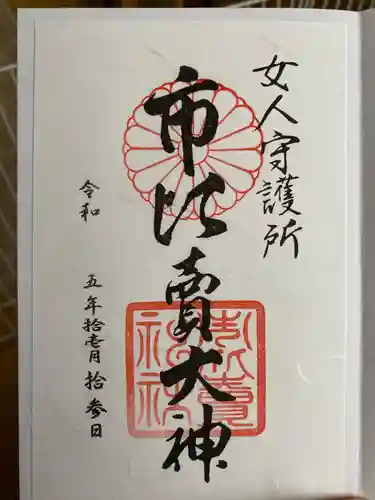 女人守護所
市比賣大神
令和 五年拾壱月拾参日
市比賣神社